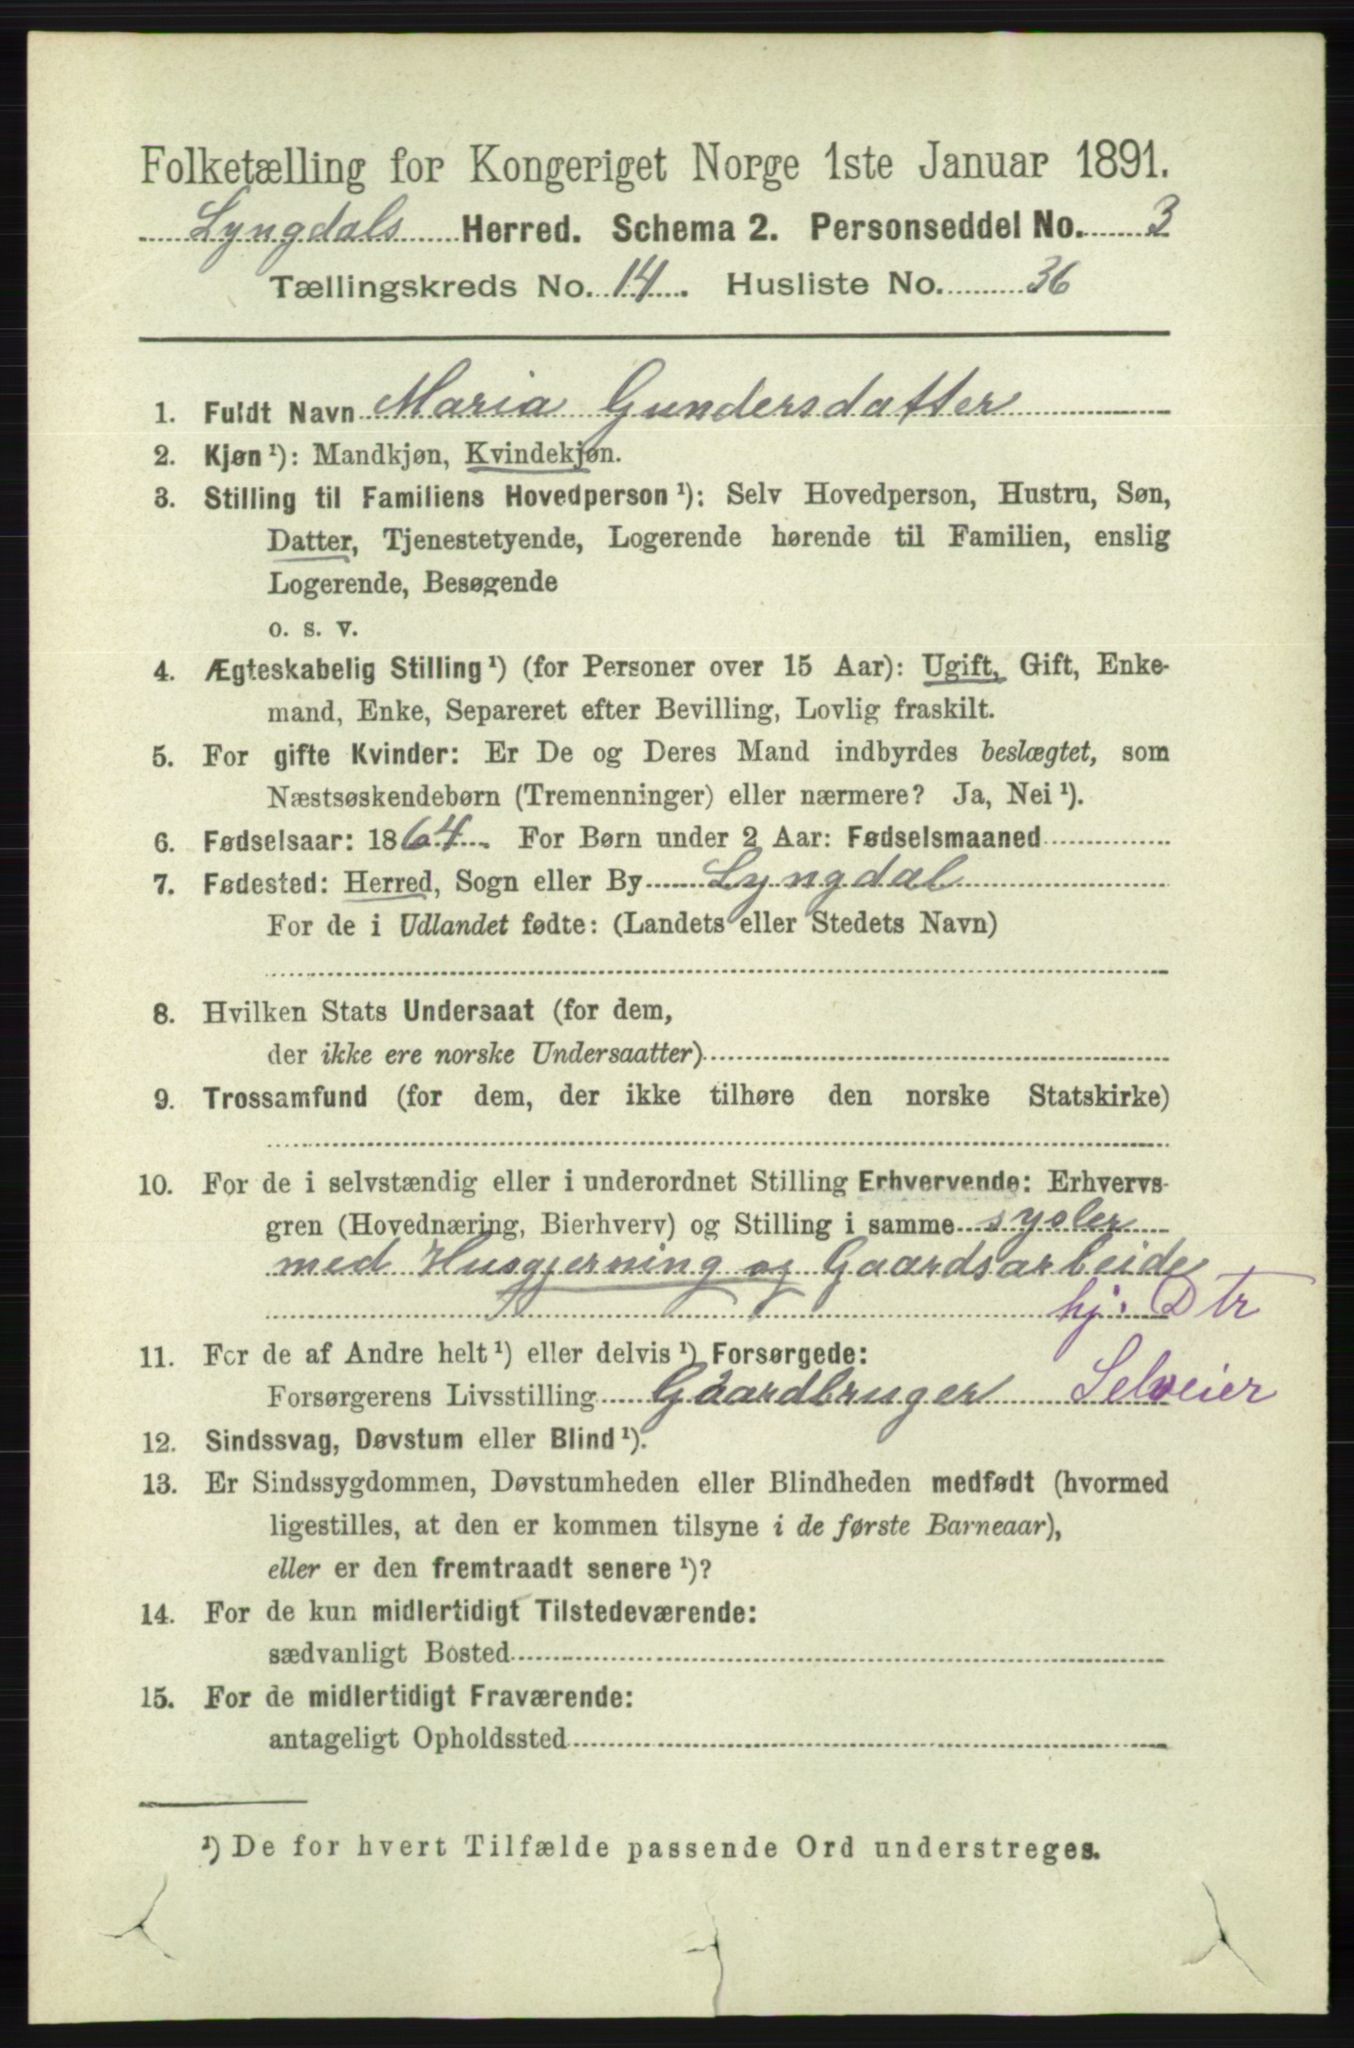 Folketælling for Kongeriget Norge 1ste Januar 1891.
Lyngdals Herred. Schema 2. Personseddel No. 3
Tællingskreds No. 14. Husliste No. 36
1. Fuldt Navn Maria Gundersdatter
2. Kjøn¹): Mandkjøn, Kvindekjøn.
3. Stilling til Familiens Hovedperson¹): Selv Hovedperson, Hustru, Søn,
Datter, Tjenestetyende, Logerende hørende til Familien, enslig
Logerende, Besøgende
o. s. v.
4. Ægteskabelig Stilling¹) (for Personer over 15 Aar): Ugift, Gift, Enke-
mand, Enke, Separeret efter Bevilling, Lovlig fraskilt.
5. For gifte Kvinder: Er De og Deres Mand indbyrdes beslægtet, som
Næstsøskendebørn (Tremenninger) eller nærmere? Ja, Nei¹).
6. Fødselsaar: 1864. For Børn under 2 Aar: Fødselsmaaned
7. Fødested: Herred, Sogn eller By Lyngdal
For de i Udlandet fødte: (Landets eller Stedets Navn)
8. Hvilken Stats Undersaat (for dem,
der ikke ere norske Undersaatter)
9. Trossamfund (for dem, der ikke tilhøre den norske Statskirke)
10. For de i selvstændig eller i underordnet Stilling Erhvervende: Erhvervs-
gren (Hovednæring, Bierhverv) og Stilling i samme sysler
med Husgjerning og Gaardsarbeide
hj. Dtr
11. For de af Andre helt¹) eller delvis¹) Forsørgede:
Forsørgerens Livsstilling Gaardbruger Selveier
12. Sindssvag, Døvstum eller Blind¹).
13. Er Sindssygdommen, Døvstumheden eller Blindheden medfødt (hvormed
ligestilles, at den er kommen tilsyne i de første Barneaar),
eller er den fremtraadt senere¹)?
14. For de kun midlertidigt Tilstedeværende:
sædvanligt Bosted
15. For de midlertidigt Fraværende:
antageligt Opholdssted
¹) De for hvert Tilfælde passende Ord understreges.